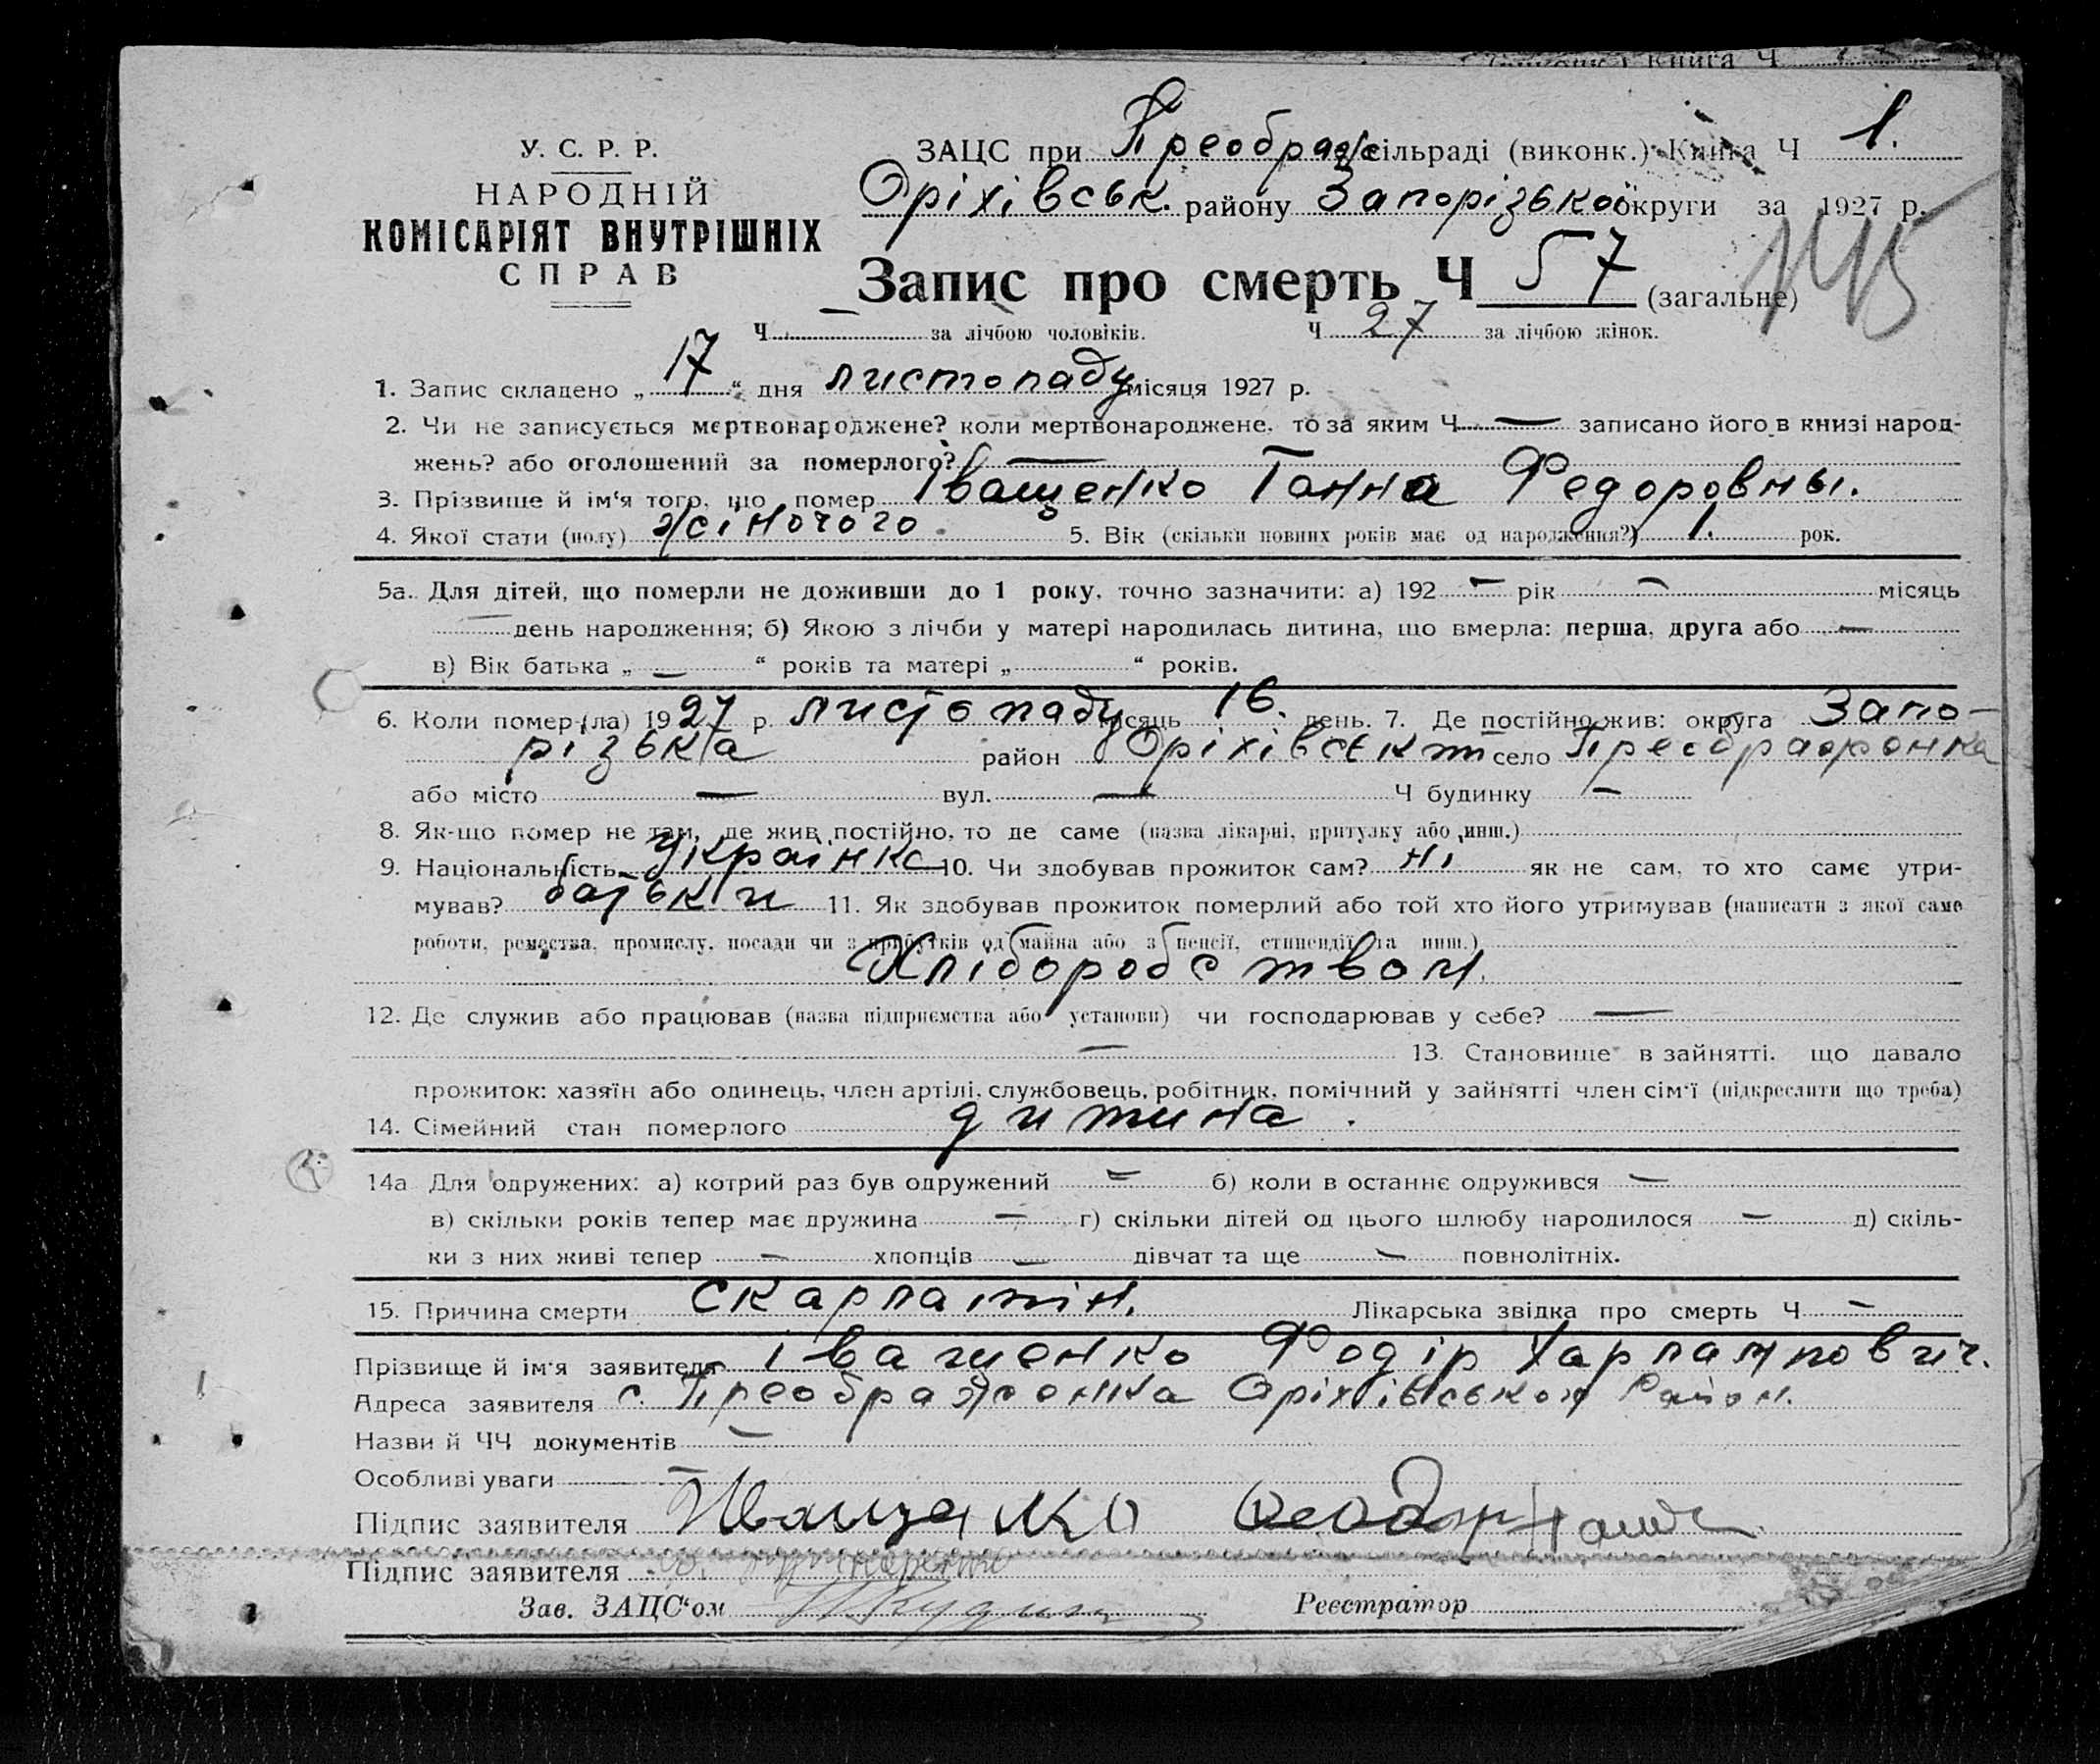 книга Ч
У. С. Р. Р.
НАРОДНІЙ
КОМІСАРІЯТ ВНУТРІШНІХ
СПРАВ
ЗАЦС при Преображ сільраді (виконк.) Книга Ч 1.
Оріхівськ. району Запорізької округи за 1927 р.
Запис про смерть Ч 57 (загальне)
145
Ч — за лічбою чоловіків. Ч 27 за лічбою жінок.
1. Запис складено „ 17 “ дня листопаду місяця 1927 р.
2. Чи не записується мертвонароджене? коли мертвонароджене, то за яким Ч — записано його в книзі народ-
жень? або оголошений за померлого? —
3. Прізвище й ім'я того, що помер Іващенко Ганна Федоровны.
4. Якої стати (полу) жіночого 5. Вік (скільки повних років має од народження?) 1. рок.
5а. Для дітей, що померли не доживши до 1 року, точно зазначити: а) 192 — рік — місяць
— день народження; б) Якою з лічби у матері народилась дитина, що вмерла: перша, друга або —
в) Вік батька „ — “ років та матері „ “ років.
6. Коли помер-(ла) 1927 р. листопаду місяць 16. день. 7. Де постійно жив: округа Запо-
різька район Оріхівськ село Преображенка
або місто — вул. — Ч будинку —
8. Як-що помер не там, де жив постійно, то де саме (назва лікарні, притулку або инш.)
9. Національність Українка 10. Чи здобував прожиток сам? ні як не сам, то хто саме утри-
мував? батьки 11. Як здобував прожиток померлий або той хто його утримував (написати з якої саме
роботи, ремества, промислу, посади чи з прибутків од майна або з пенсії, стипендії та инш.)
Хліборобством.
12. Де служив або працював (назва підприємства або установи) чи господарював у себе? —
— 13. Становище в зайнятті, що давало
прожиток: хазяїн або одинець, член артілі, службовець, робітник, помічний у зайнятті член сім'ї (підкреслити що треба)
14. Сімейний стан померлого дитина.
14а Для одружених: а) котрий раз був одружений — б) коли в останнє одружився —
в) скільки років тепер має дружина — г) скільки дітей од цього шлюбу народилося — д) скіль-
ки з них живі тепер — хлопців — дівчат та ще — повнолітніх.
15. Причина смерти скарлатін. Лікарська звідка про смерть Ч —
Прізвище й ім'я заявителя Іващенко Федір Харлампович.
Адреса заявителя с. Преображенка Оріхівськой Район.
Назви й ЧЧ документів —
Особливі уваги —
Підпис заявителя Иващенко
Підпис заявителя
Зав. ЗАЦС'ом
Реєстратор